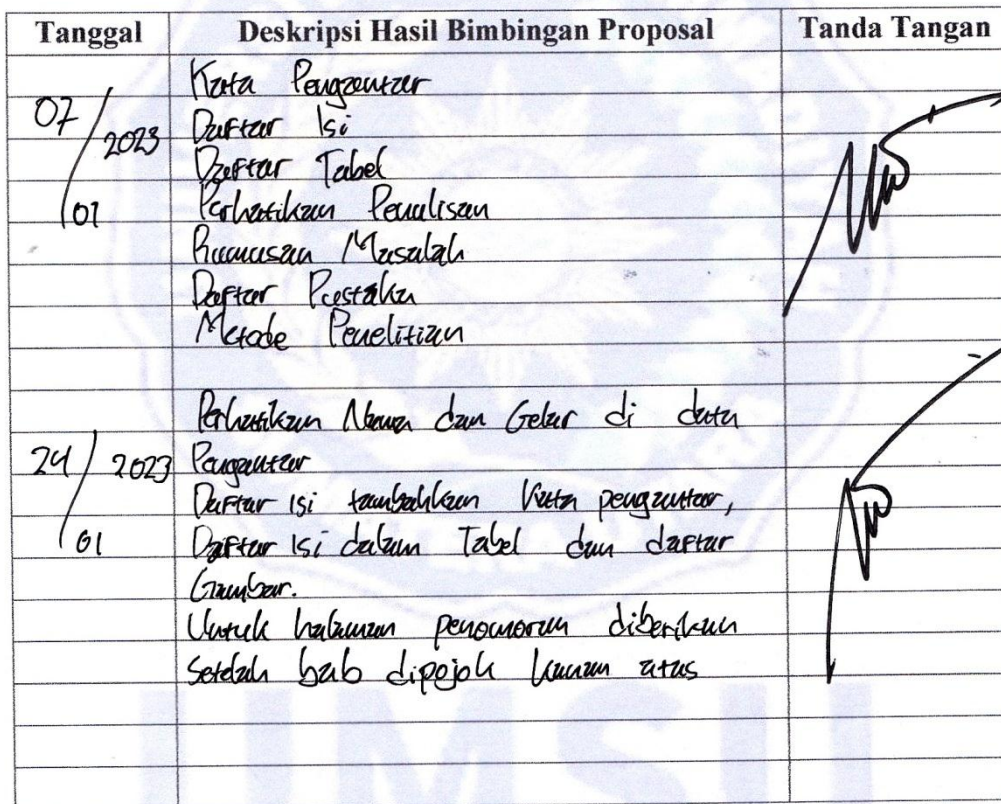 Tanggal Deskripsi Hasil Bimbingan Proposal Tanda Tangan
Kata Pengantar
07/01 2023 Daftar Isi
Daftar Tabel
Perhatikan Penulisan
Rumusan Masalah
Daftar Pustaka
Metode Penelitian
Perhatikan Nama dan Gelar di data
24/01 2023 Pengantar
Daftar Isi tambahkan kata pengantar,
Daftar Isi dalam Tabel dan daftar
Gambar.
Untuk halaman penomorun diberikan
Setelah bab dipojok kanan atas
UMSU